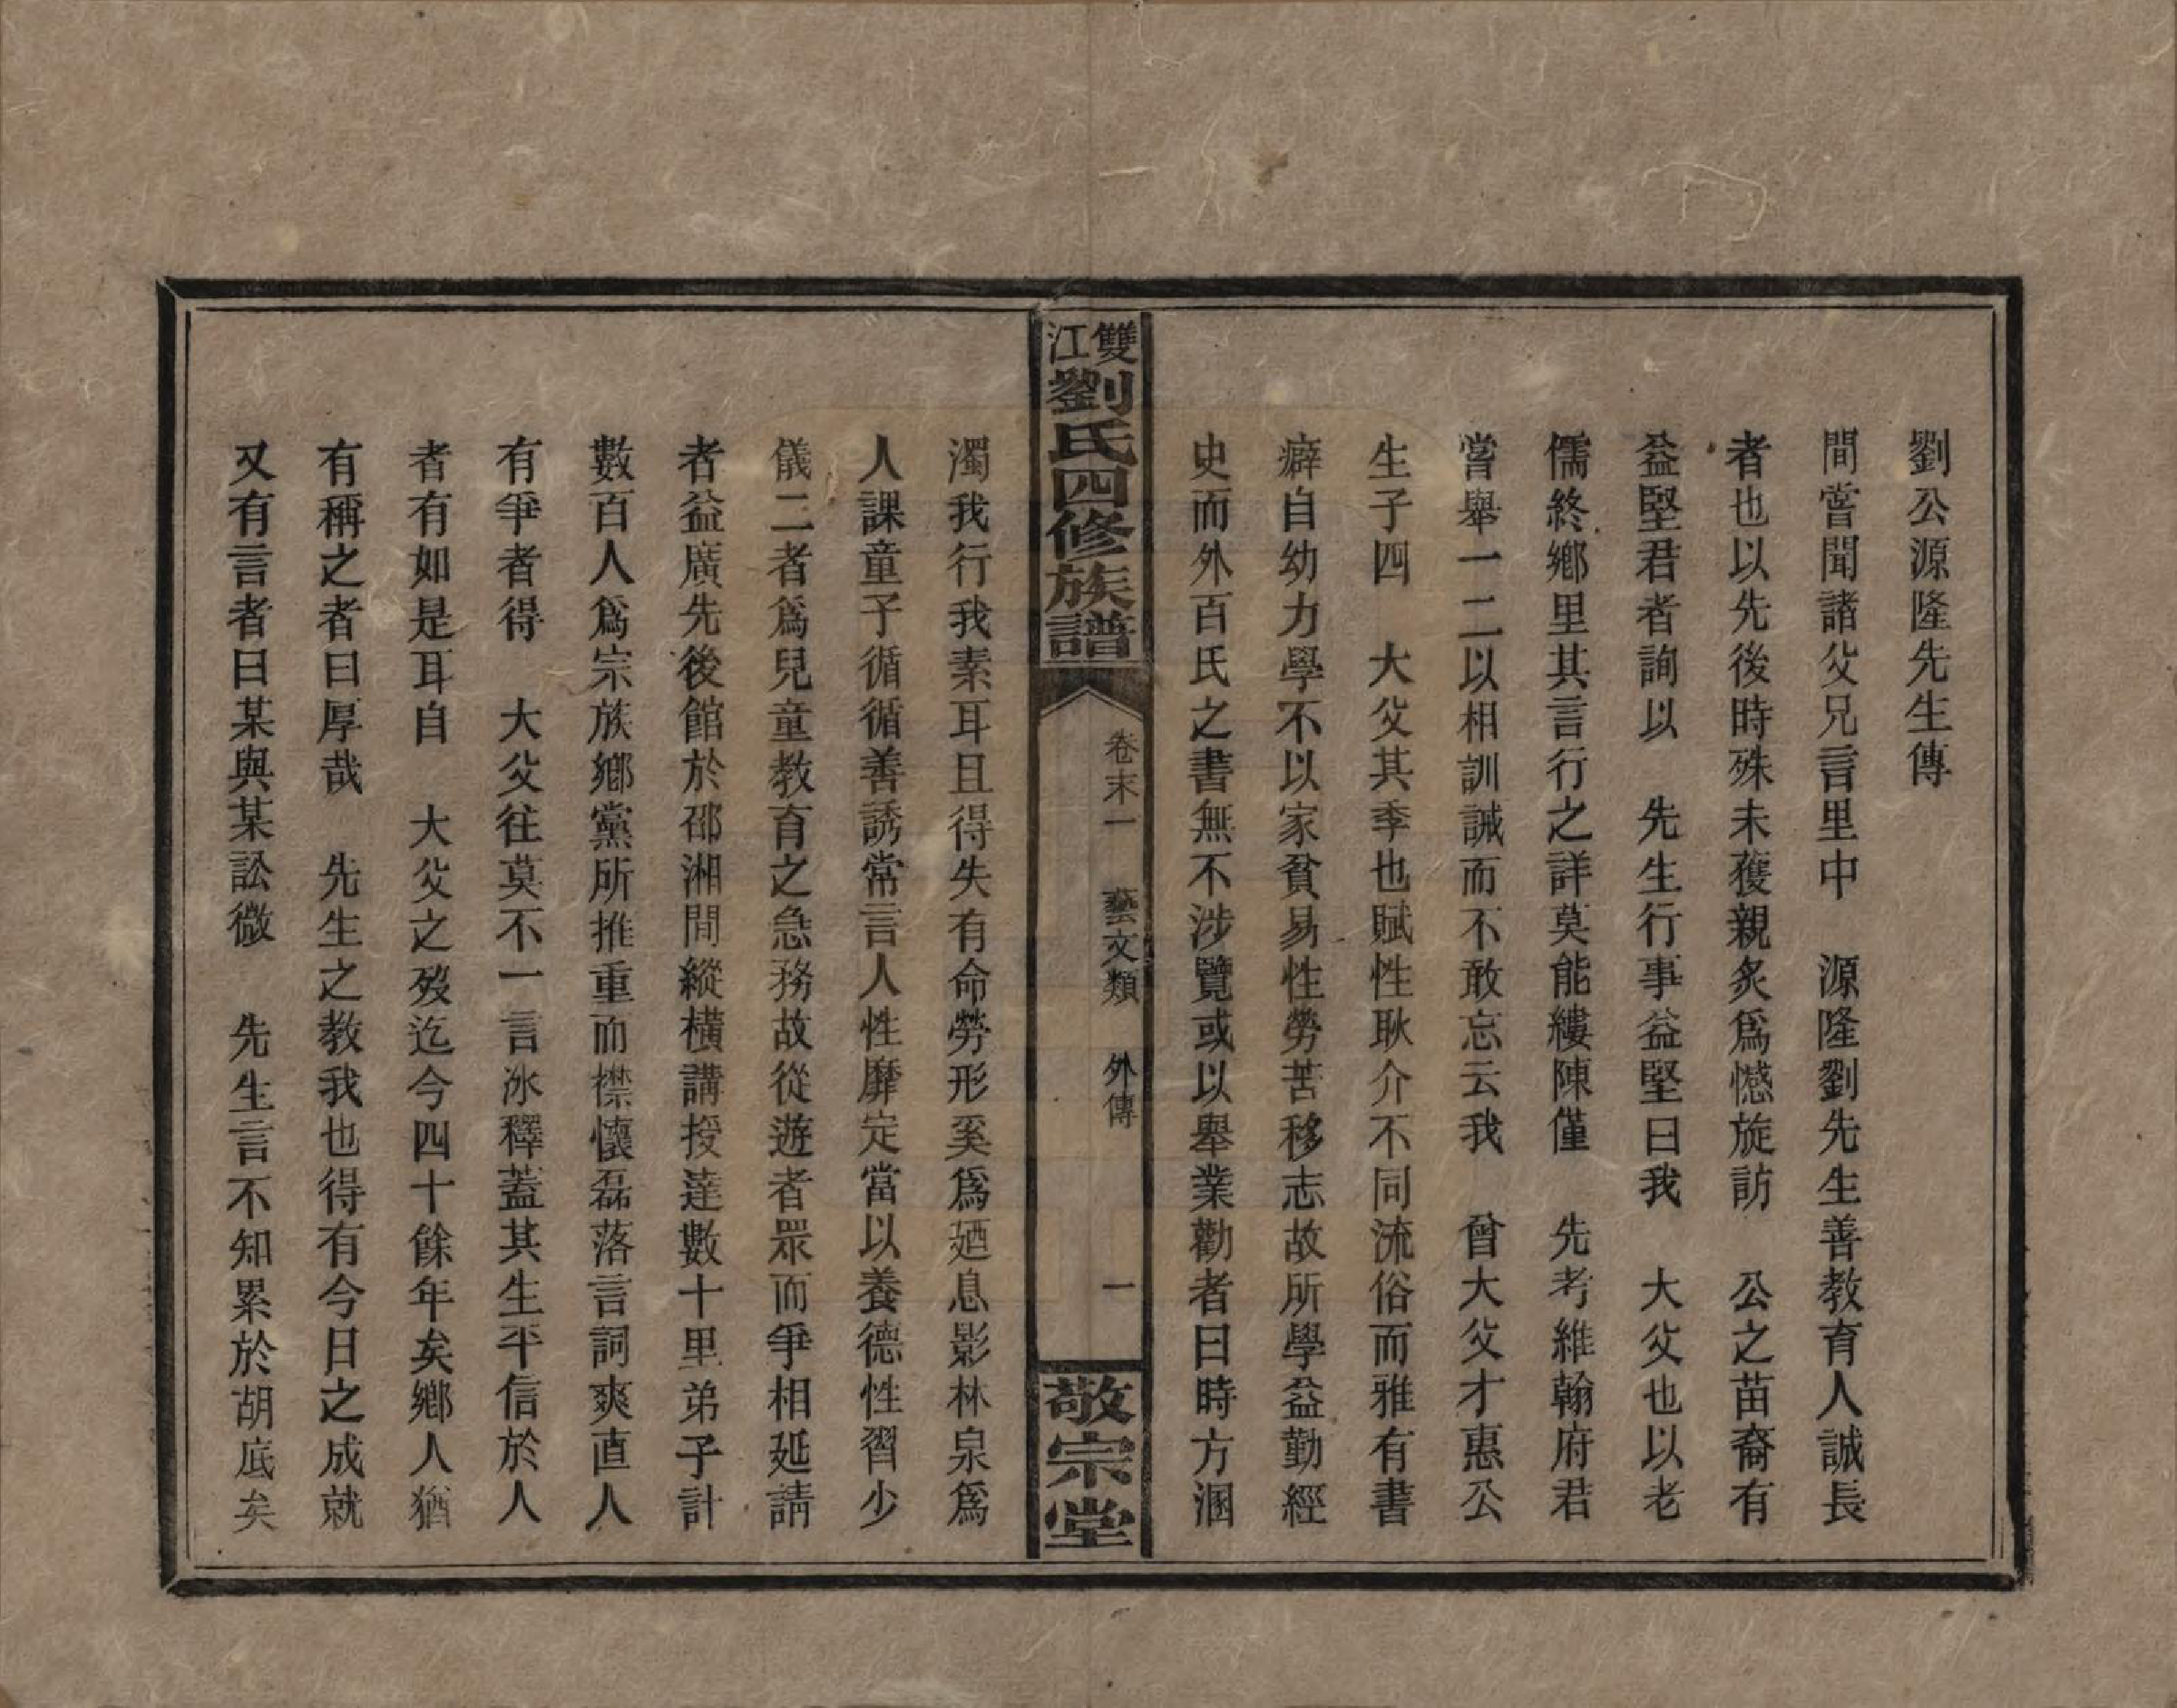 劉公源隆先生傳
間嘗聞諸父兄言里中　源隆劉先生善教育人誠長
者也以先後時殊未獲親炙爲憾旋訪　公之苗裔有
益堅君者詢以　先生行事益堅曰我　大父也以老
儒終鄉里其言行之詳莫能縷陳僅　先考維翰府君
嘗舉一二以相訓誡而不敢忘云我　曾大父才惠公
生子四　大父其季也賦性耿介不同流俗而雅有書
癖自幼力學不以家貧易性勞苦移志故所學益勤經
史而外百氏之書無不涉覽或以舉業勸者曰時方溷
雙江劉氏四修族譜
卷末一　藝文類　外傳　一
敬宗堂
濁我行我素耳且得失有命勞形奚爲廼息影林泉爲
人課童子循循善誘常言人性靡定當以養德性習少
儀二者爲兒童教育之急務故從遊者眾而爭相延請
者益廣先後館於邵湘間縱橫講授達數十里弟子計
數百人爲宗族鄉黨所推重而襟懷磊落言詞爽直人
有爭者得　大父往莫不一言冰釋蓋其生平信於人
者有如是耳自　大父之歿迄今四十餘年矣鄉人猶
有稱之者曰厚哉　先生之教我也得有今日之成就
又有言者曰某與某訟微　先生言不知累於胡底矣